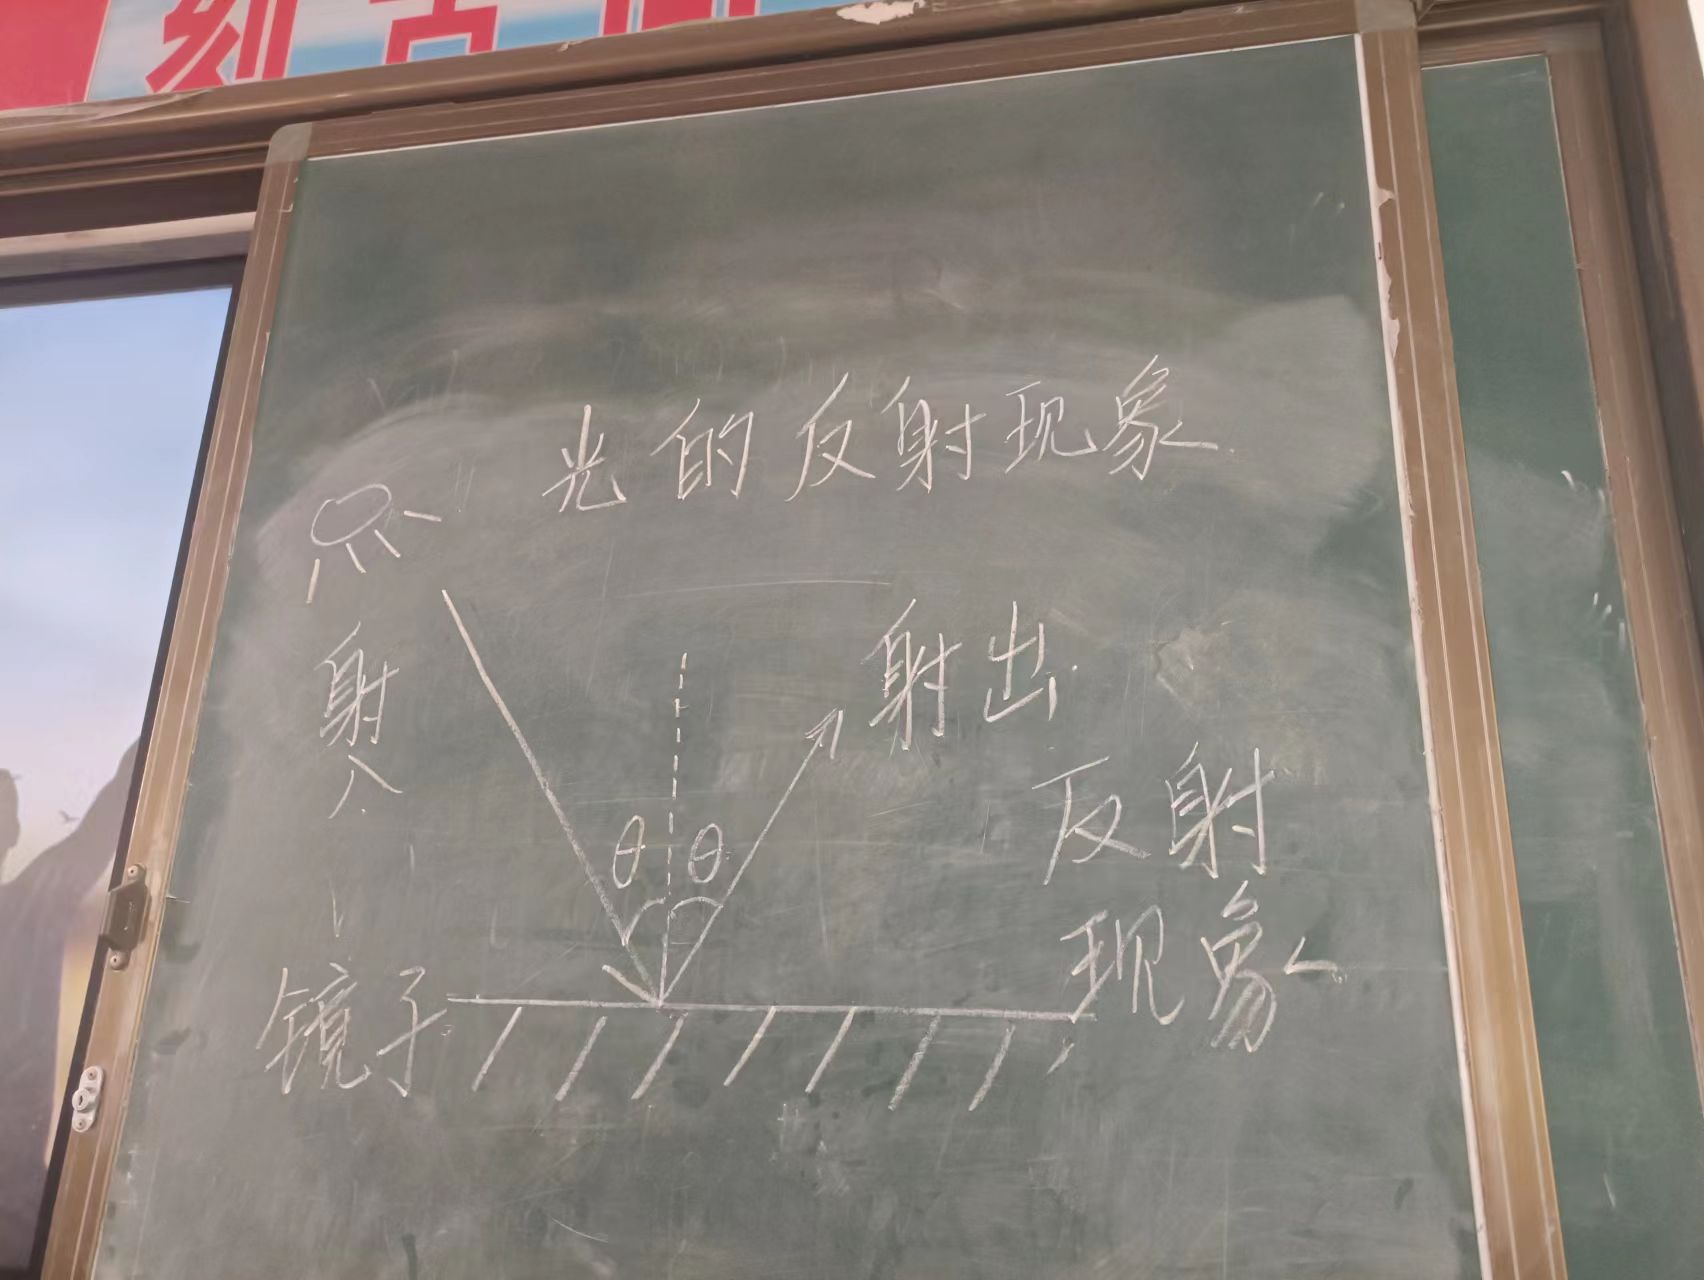 刻苦
光的反射现象
射入
射出
θ θ
反射
现象
镜子